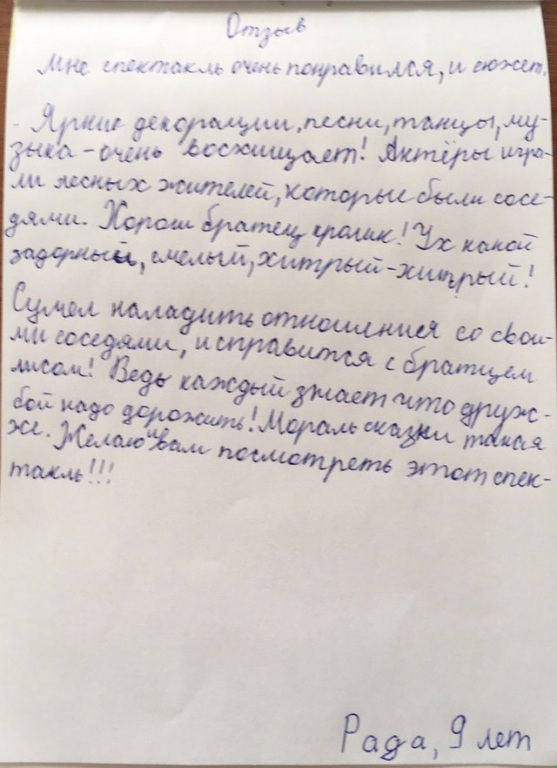 Отзыв
Мне спектакль очень понравился, и сюжет.
- Яркие декорации, песни, танцы, му-
зыка - очень восхищает! Актёры игра-
ли лесных жителей, которые были сосе-
дями. Хорош братец кролик! Ух какой
задорный, смелый, хитрый-хитрый!
Сумел наладить отношения со свои-
ми соседями, и справится с братцем
лисом! Ведь каждый знает что друж-
бой надо дорожить! Мораль сказки такая
же. Желаю и вам посмотреть этот спек-
такль!!!
Рада, 9 лет